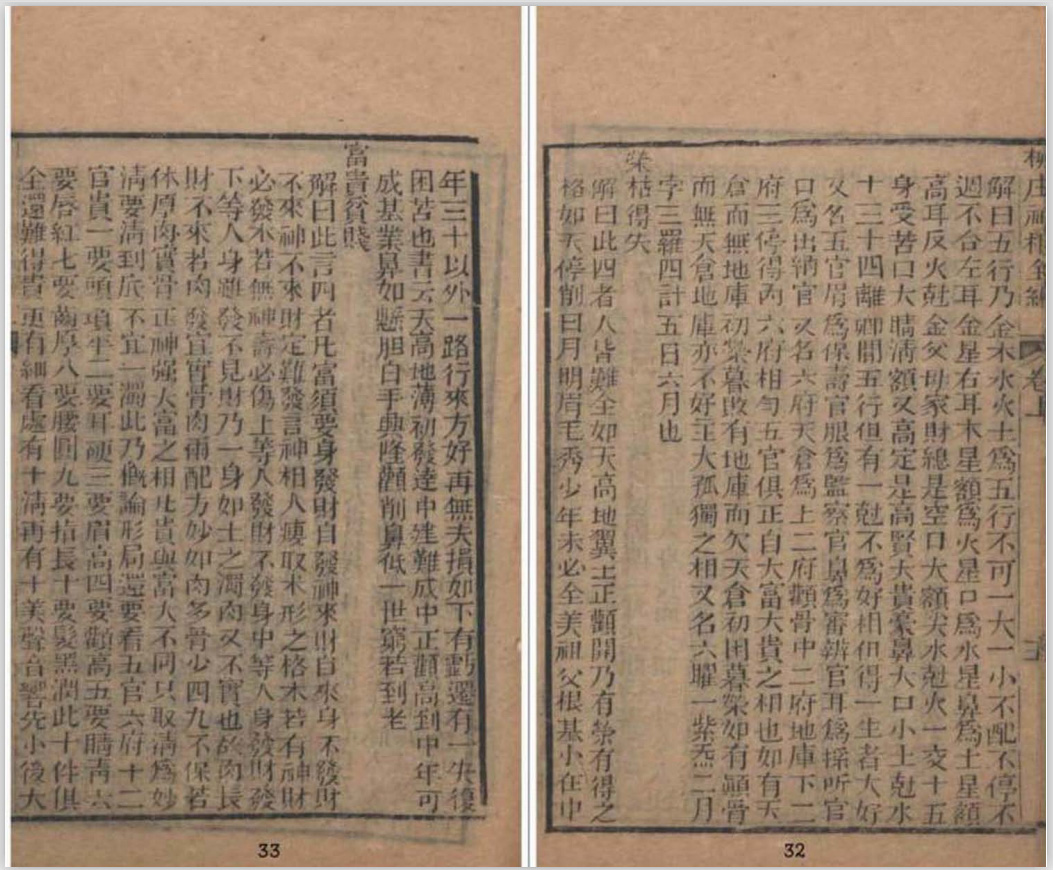 柳庄神相全編 卷上
解曰五行乃金木水火土爲五行不可一大一小不配不停不
週不合左耳金星右耳木星額爲火星口爲水星鼻爲土星額
高耳反火尅金父母家財總是空口大額尖水尅火一交十五
身受苦口大睛淸額又高定是高賢大貴豪鼻大口小土尅水
十三十四離鄉關五行但有一尅不爲好相但得一生者大好
又名五官眉爲保壽官眼爲監察官鼻爲審辨官耳爲採听官
口爲出納官又名六府天倉爲上二府顴骨中二府地庫下二
府三停得配六府相勻五官俱正自大富大貴之相也如有天
倉而無地庫初榮暮敗有地庫而欠天倉初困暮榮如有顴骨
而無天倉地庫亦不好主大孤獨之相又名六曜一紫炁二月
孛三羅四計五日六月也
榮枯得失
解曰此四者人皆難全如天高地翼土正顴開乃有榮有得之
格如天停削日月明眉毛秀少年未必全美祖父根基小在中
32
年三十以外一路行來方好再無夭損如下有虧還有一失復
困苦也書云天高地薄初發達中難成中正顴高到中年可
成基業鼻如懸胆白手興隆顴削鼻低一世窮若到老
富貴貧賤
解曰此言四者凡富須要身發財自發神來財自來身不發財
不來神不來財定難發言神相人瘦取木形之格木若有神財
必發木若無神壽必傷上等人發財不發身中等人身發財發
下等人身雖發不見財乃一身如土之濁肉又不實也於肉長
財不來若肉發宜實骨肉兩配方妙如肉多骨少四九不保若
体厚肉實骨正神强大富之相凡貴與富大不同只取淸爲妙
淸要淸到底不宜一濁此乃槪論形局還要看五官六府十二
官貴一要頭項平二要耳硬三要眉高四要顴高五要睛靑六
要唇紅七要齒厚八要腰圓九要指長十要髮黑潤此十件俱
全還難得貴更有細看處有十淸再有十美聲音響先小後大
33